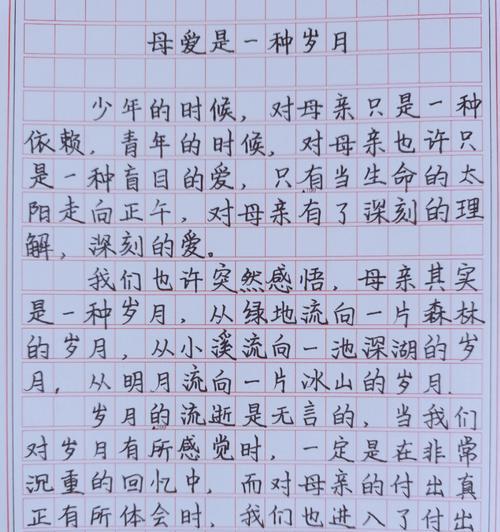 母爱是一种岁月
少年的时候，对母亲只是一种
依赖，青年的时候，对母亲也许只
是一种盲目的爱，只有当生命的太
阳走向正午，对母亲有了深刻的理
解，深刻的爱。
我们也许突然感悟，母亲其实
是一种岁月，从绿地流向一片森林
的岁月，从小溪流向一池深湖的岁
月，从明月流向一片冰山的岁月.
岁月的流逝是无言的，当我们
对岁月有所感觉时，一定是在非常
沉重的回忆中，而对母亲的付出真
正有所体会时，我们也进入了付出